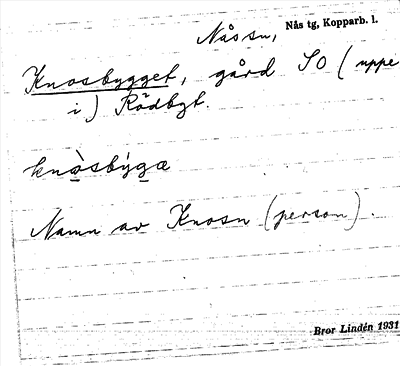 Nås sn,
Nås tg, Kopparb. l.
Knosbygget, gård SO (uppe
i) Rödbgt.
knòsbýgæ
Namn av Knosn (person).
Bror Lindén 1931